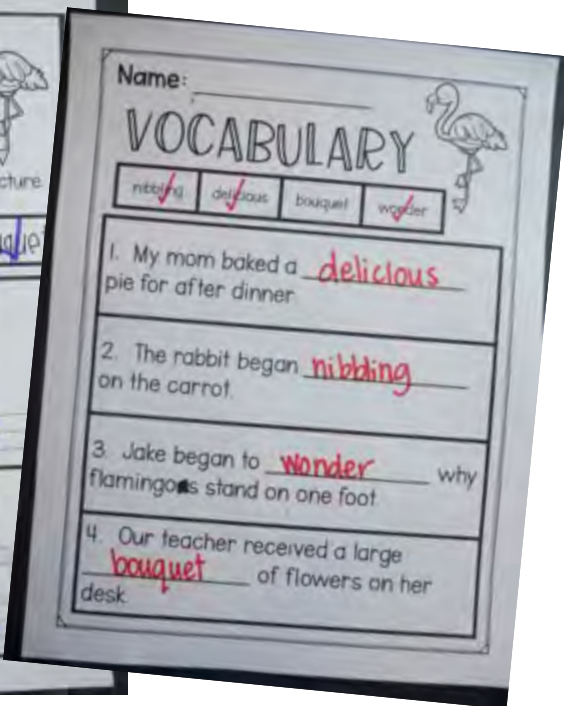 cture.
Name:
VOCABULARY
nibbling delicious bouquet wonder
1. My mom baked a delicious
pie for after dinner.
2. The rabbit began nibbling
on the carrot.
3. Jake began to wonder why
flamingos stand on one foot.
4. Our teacher received a large
bouquet of flowers on her
desk.